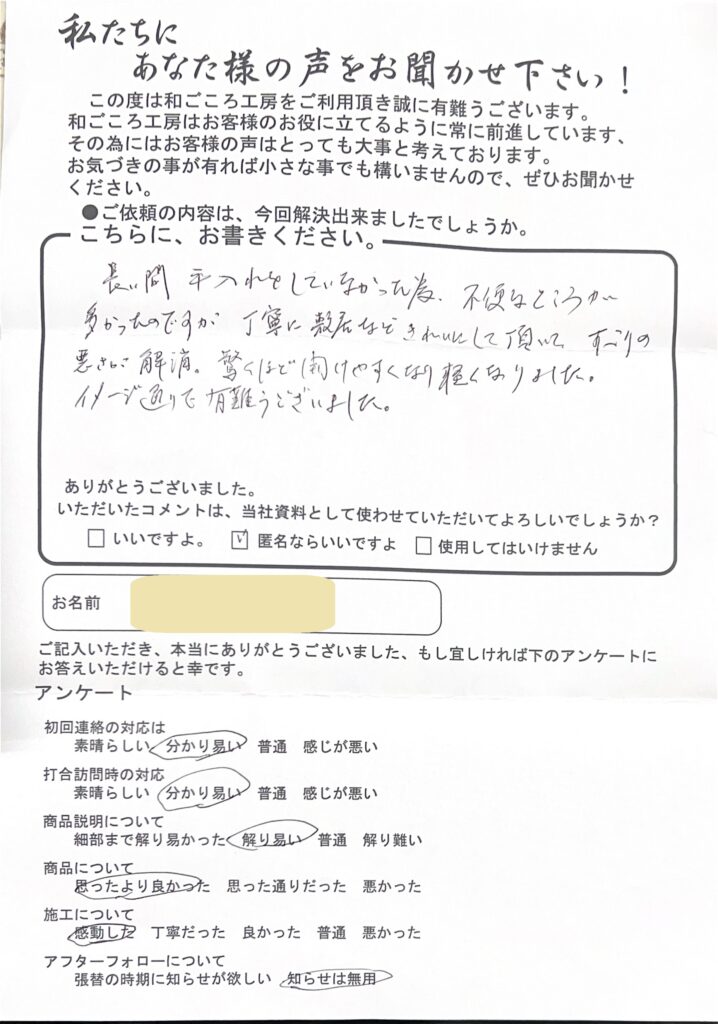 私たちに
あなた様の声をお聞かせ下さい!
この度は和ごころ工房をご利用頂き誠に有難うございます。
和ごころ工房はお客様のお役に立てるように常に前進しています、
その為にはお客様の声はとっても大事と考えております。
お気づきの事が有れば小さな事でも構いませんので、ぜひお聞かせ
ください。
●ご依頼の内容は、今回解決出来ましたでしょうか。
こちらに、お書きください。
長い間 手入れをしていなかった為、不便なところが
多かったのですが 丁寧に敷居などきれいにして頂いて すべりの
悪さが解消。驚くほど開けやすくなり軽くなりました。
イメージ通りで有難うございました。
ありがとうございました。
いただいたコメントは、当社資料として使わせていただいてよろしいでしょうか?
□ いいですよ。 ☑ 匿名ならいいですよ □ 使用してはいけません
お名前
ご記入いただき、本当にありがとうございました、もし宜しければ下のアンケートに
お答えいただけると幸です。
アンケート
初回連絡の対応は
素晴らしい 分かり易い 普通 感じが悪い
打合訪問時の対応
素晴らしい 分かり易い 普通 感じが悪い
商品説明について
細部まで解り易かった 解り易い 普通 解り難い
商品について
思ったより良かった 思った通りだった 悪かった
施工について
感動した 丁寧だった 良かった 普通 悪かった
アフターフォローについて
張替の時期に知らせが欲しい 知らせは無用